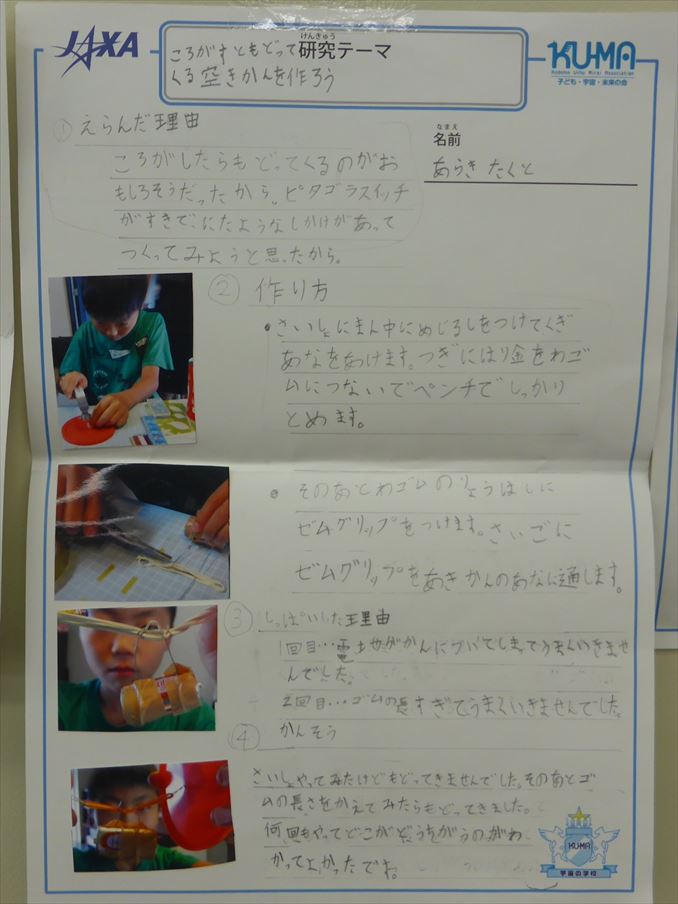 JAXA
けんきゅう
研究テーマ
ころがすともどって
くる空きかんを作ろう
KU-MA
Kodomo Uchu Mirai Association
子ども・宇宙・未来の会
なまえ
名前
あらき たくと
① えらんだ理由
ころがしたらもどってくるのがお
もしろそうだったから。ピタゴラスイッチ
がすきで、にたようなしかけがあって
つくってみようと思ったから。
② 作り方
・さいしょにまん中にめじるしをつけてくぎ
あなをあけます。つぎにはり金をわゴ
ムにつないでペンチでしっかり
とめます。
・そのあとわゴムのりょうはしに
ゼムグリップをつけます。さいごに
ゼムグリップをあきかんのあなに通します。
③ しっぱいした理由
1回目…電池がかんについてしまってうまくいきませ
んでした。
2回目…ゴムの長すぎてうまくいきませんでした。
④ かんそう
さいしょやってみたけどもどってきませんでした。そのあとゴ
ムの長さをかえてみたらもどってきました。
何回もやってどこがどうちがうのがわ
かってよかったです。
KU-MA
宇宙の学校